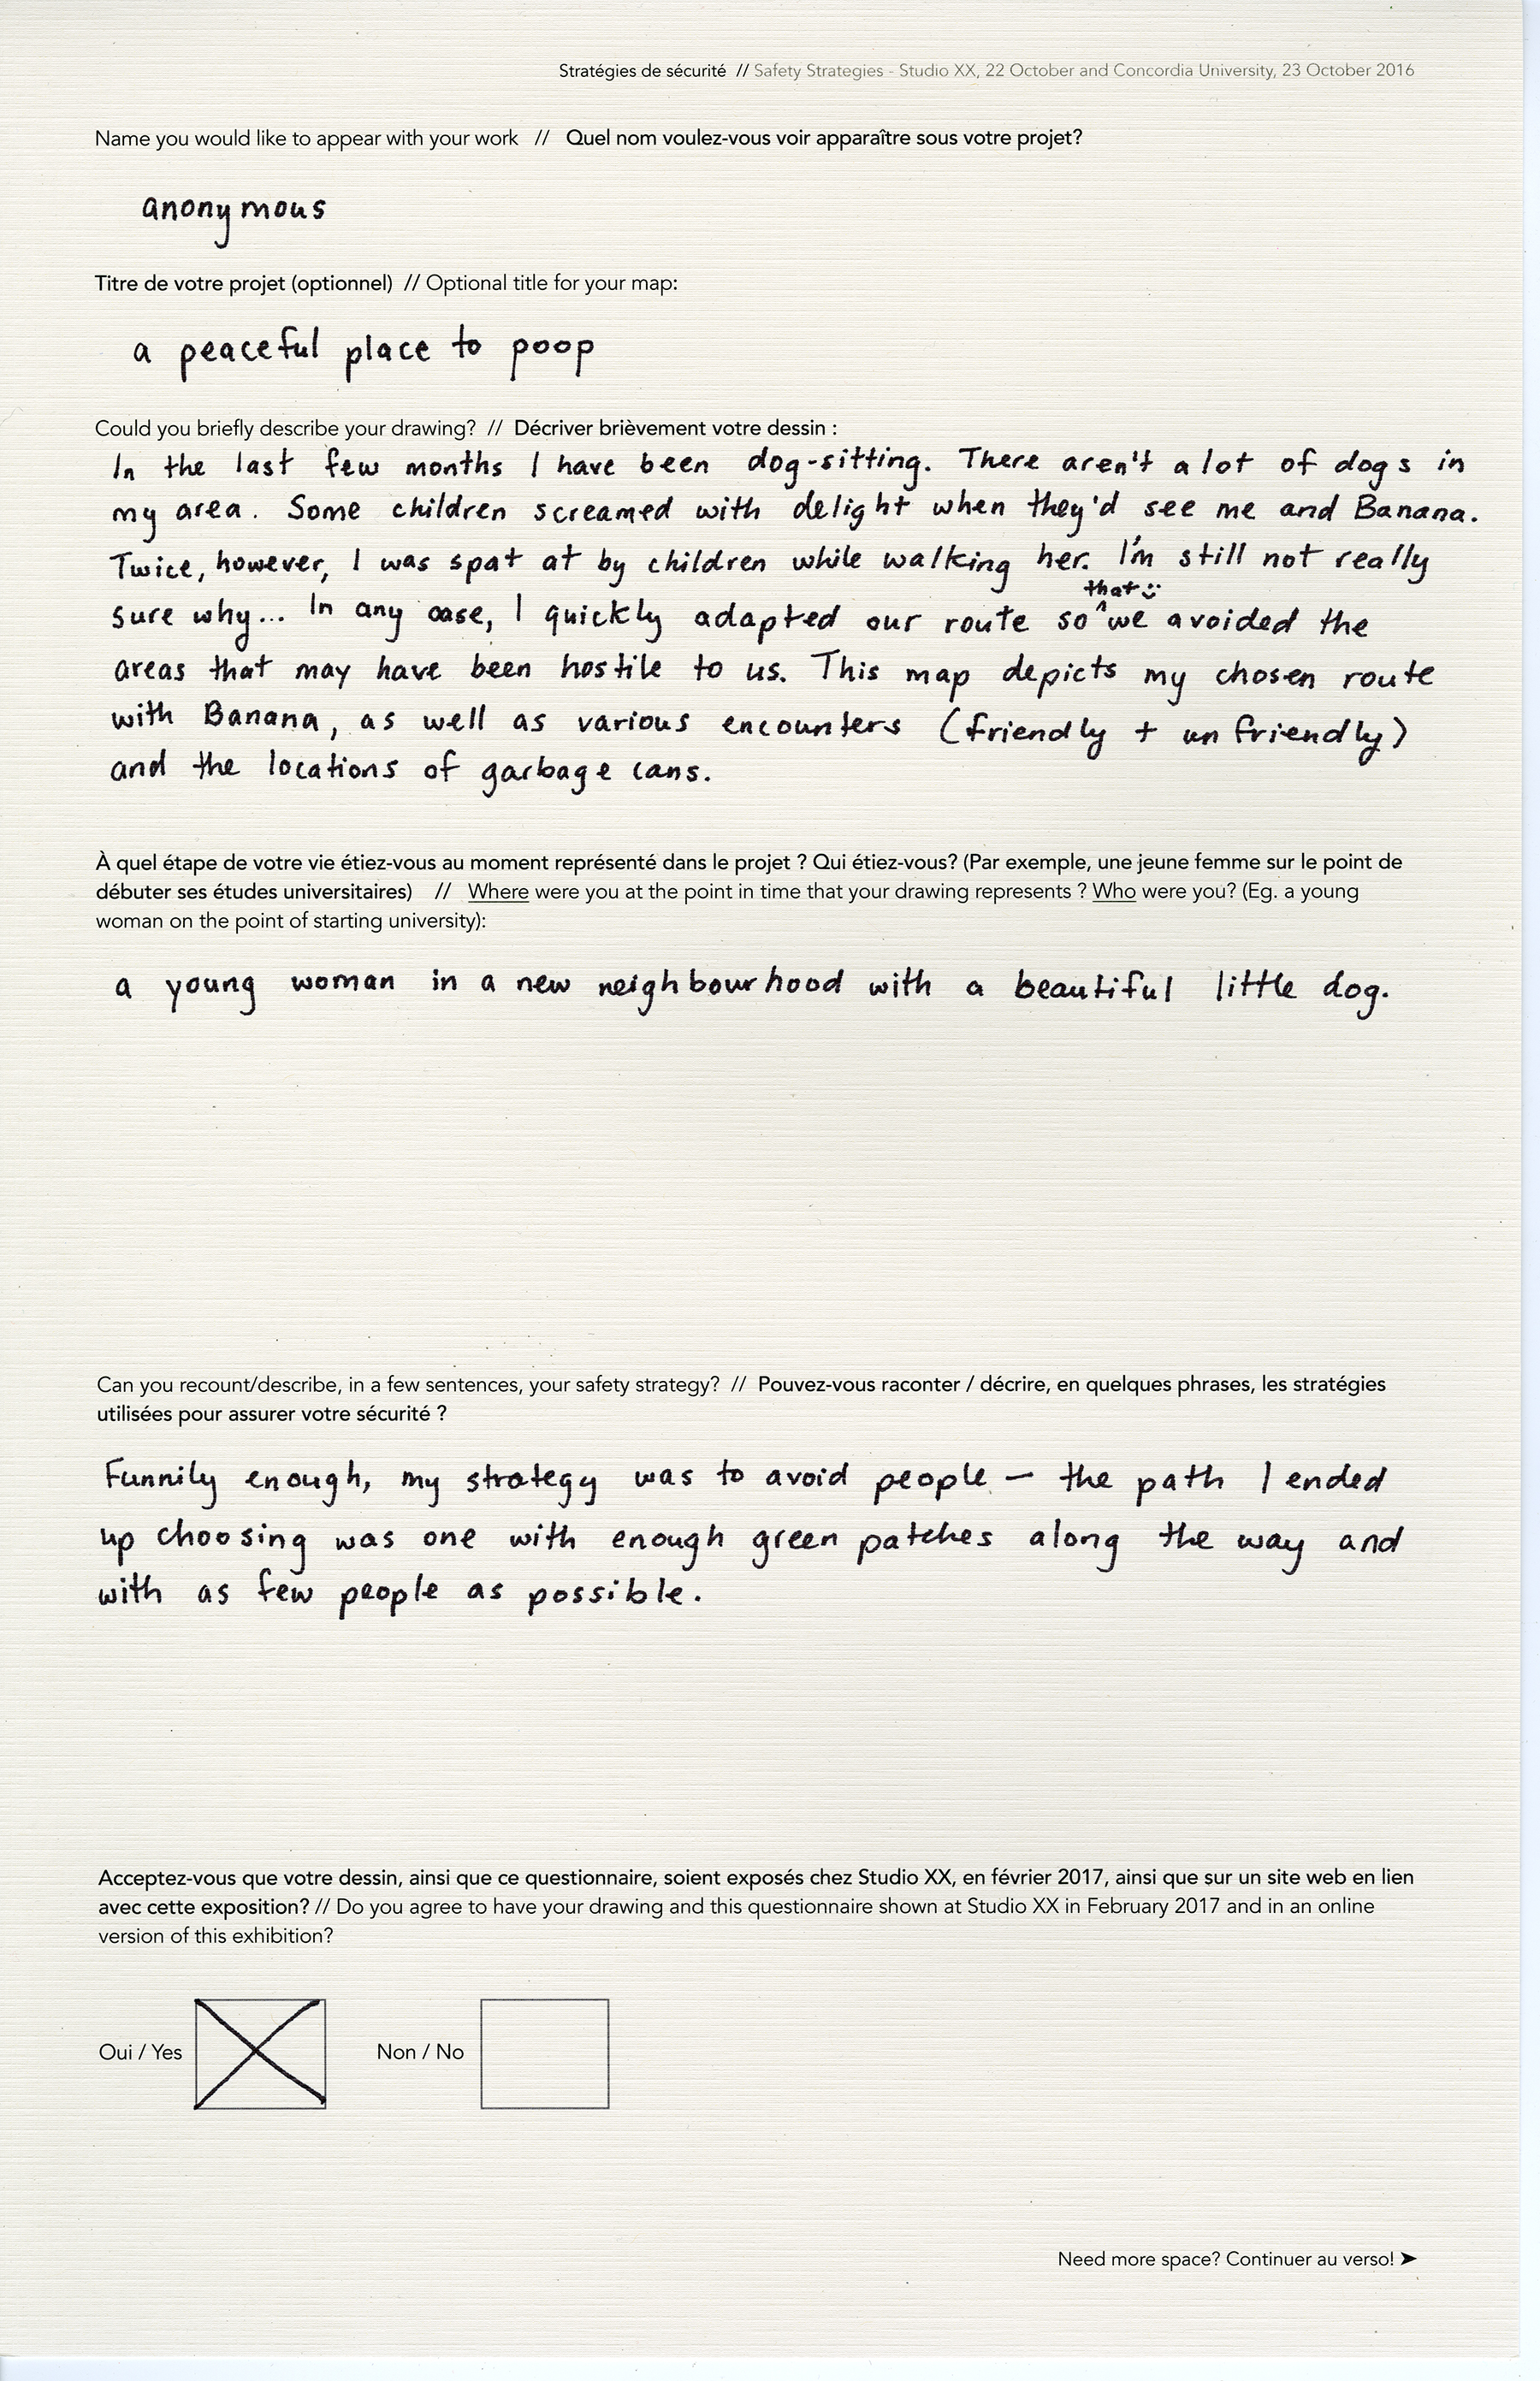 Stratégies de sécurité // Safety Strategies - Studio XX, 22 October and Concordia University, 23 October 2016
Name you would like to appear with your work // Quel nom voulez-vous voir apparaître sous votre projet?
anonymous
Titre de votre projet (optionnel) // Optional title for your map:
a peaceful place to poop
Could you briefly describe your drawing? // Décriver brièvement votre dessin :
In the last few months I have been dog-sitting. There aren't a lot of dogs in
my area. Some children screamed with delight when they'd see me and Banana.
Twice, however, I was spat at by children while walking her. I'm still not really
that :)
sure why... In any case, I quickly adapted our route so ^ we avoided the
areas that may have been hostile to us. This map depicts my chosen route
with Banana, as well as various encounters (friendly + unfriendly)
and the locations of garbage cans.
À quel étape de votre vie étiez-vous au moment représenté dans le projet ? Qui étiez-vous? (Par exemple, une jeune femme sur le point de
débuter ses études universitaires) // Where were you at the point in time that your drawing represents ? Who were you? (Eg. a young
woman on the point of starting university):
a young woman in a new neighbourhood with a beautiful little dog.
Can you recount/describe, in a few sentences, your safety strategy? // Pouvez-vous raconter / décrire, en quelques phrases, les stratégies
utilisées pour assurer votre sécurité ?
Funnily enough, my strategy was to avoid people — the path I ended
up choosing was one with enough green patches along the way and
with as few people as possible.
Acceptez-vous que votre dessin, ainsi que ce questionnaire, soient exposés chez Studio XX, en février 2017, ainsi que sur un site web en lien
avec cette exposition? // Do you agree to have your drawing and this questionnaire shown at Studio XX in February 2017 and in an online
version of this exhibition?
Oui / Yes Non / No
Need more space? Continuer au verso! ➤